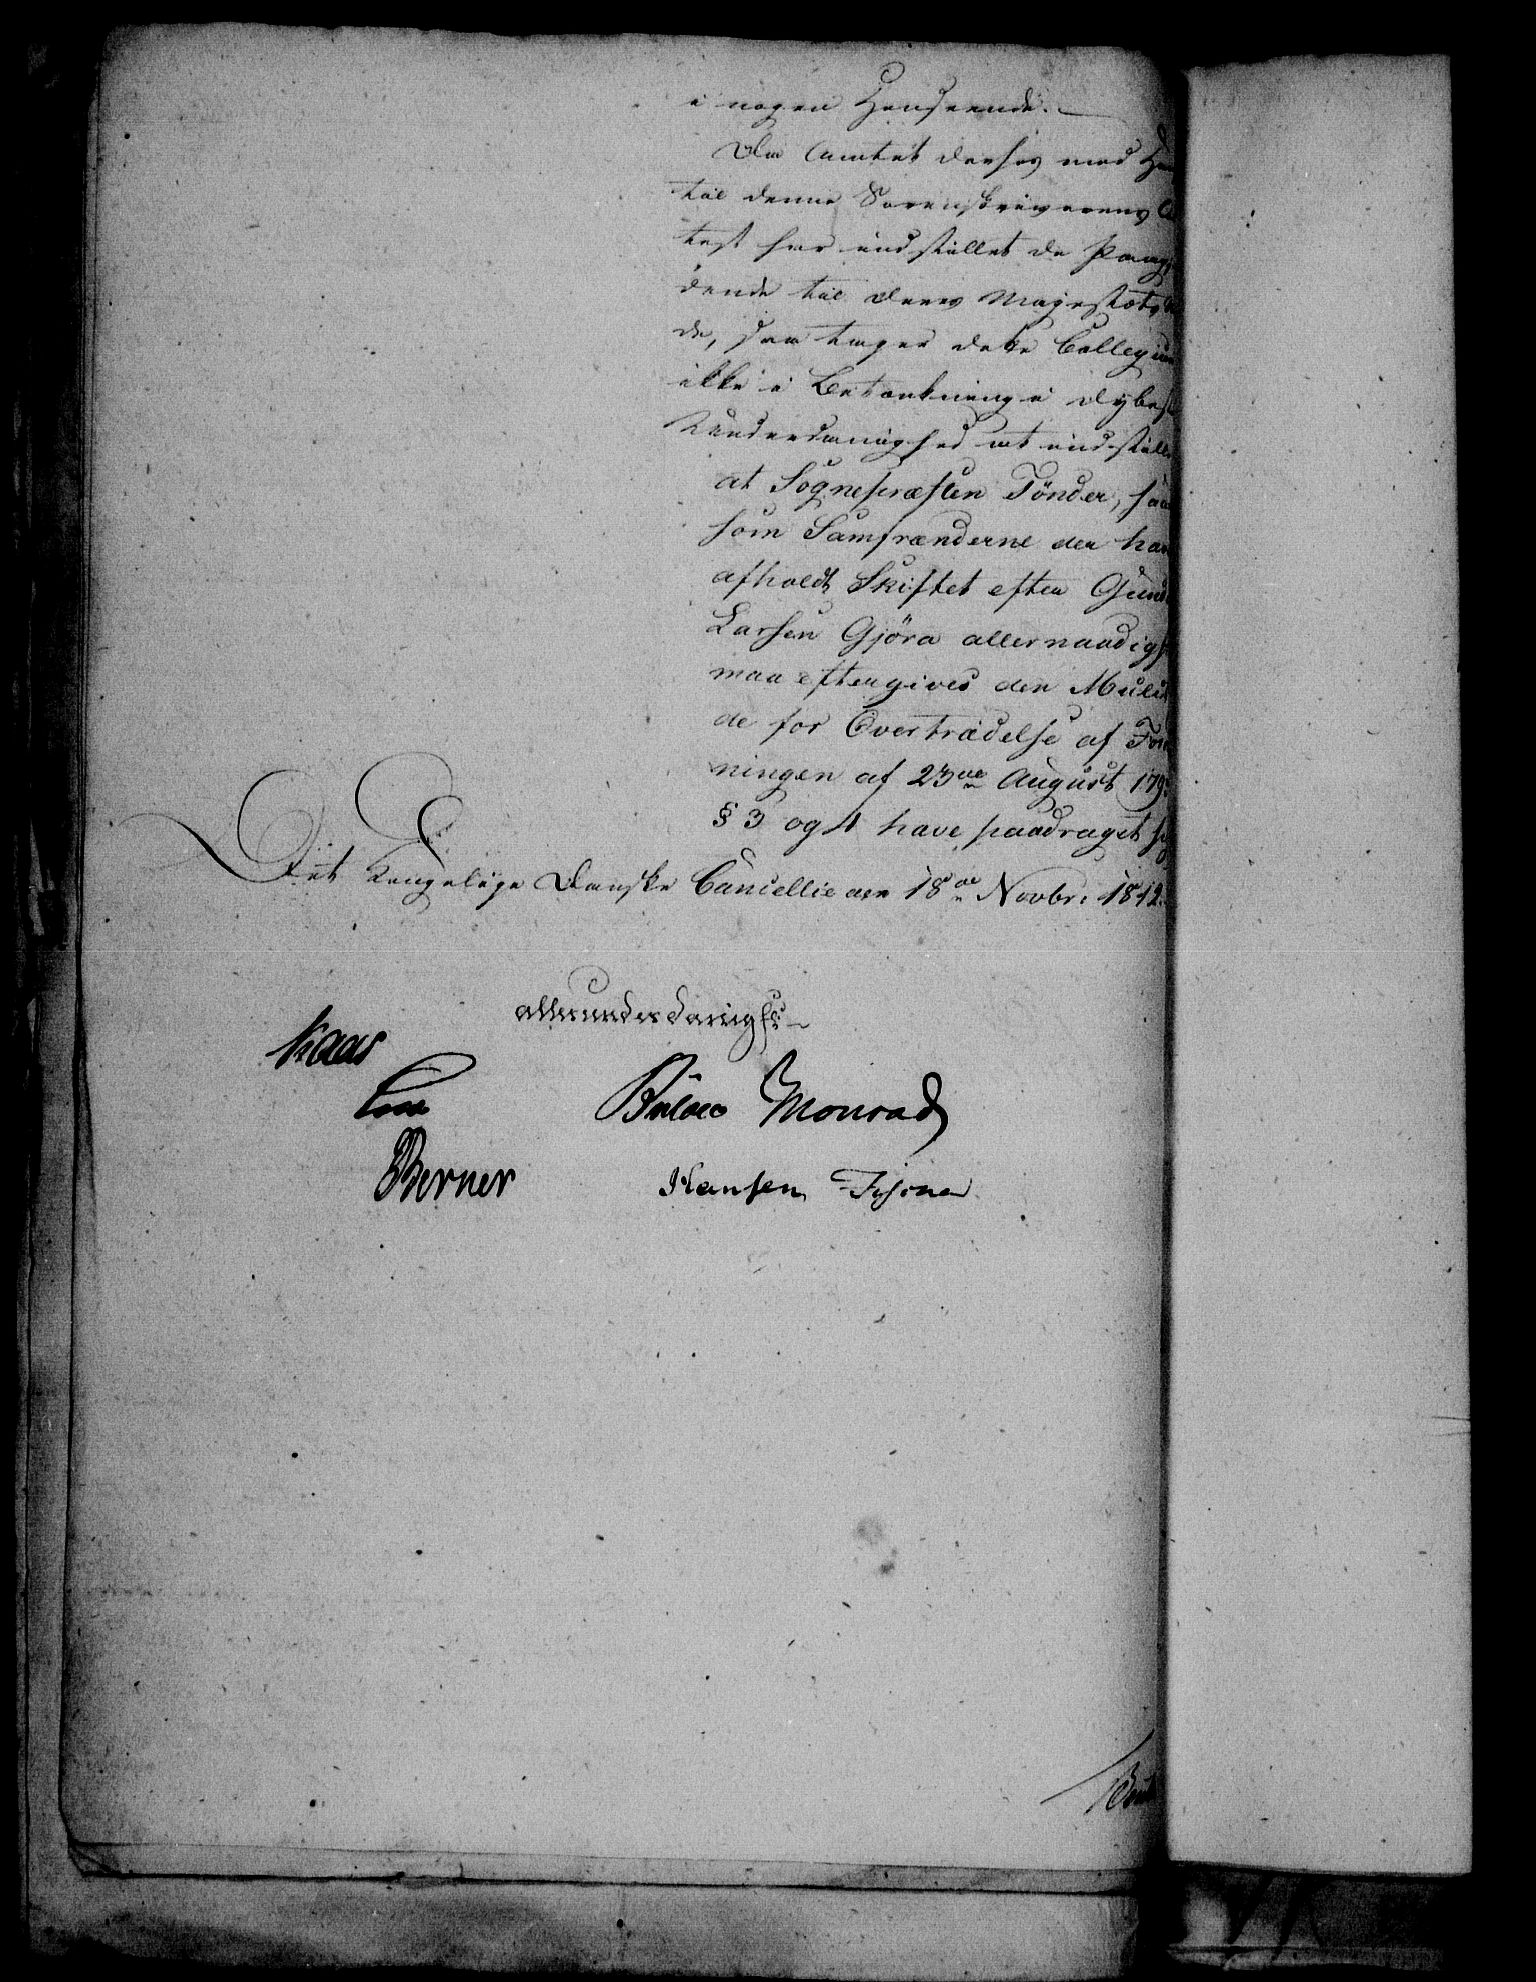 i nogen Henseende.
Da Amtet derhos med
til denne Sorenskriverens
test har indstillet de
dende til Deres Majestæts
de, saa tager dette Collegium
ikke i Betænkning i dybeste
Underdanighed at indstille
at Sognepræsten Tønder, saa
som Samfrænderne der have
afholdt Skiftet efter
Larsen Gjöra allernaadigst
maa eftergives den
de for Overtrædelse af
ningen af 23de August 179
§ 3 og 4 have paadraget
Det Kongelige Danske Cancellie den 18de Novbr: 1812.
allerunderdanigst
Kaas
Bülow Monrad
Berner Hansen